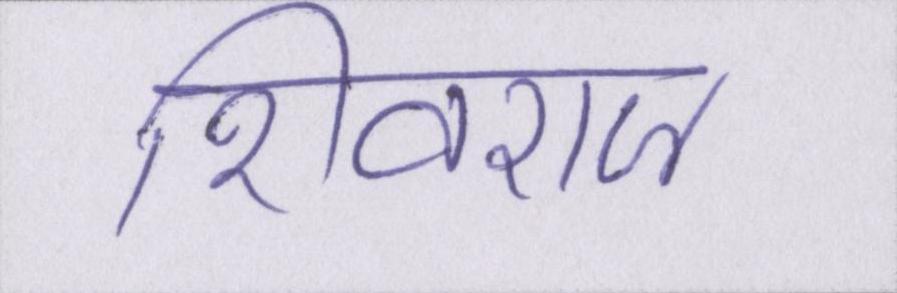 शिवराज